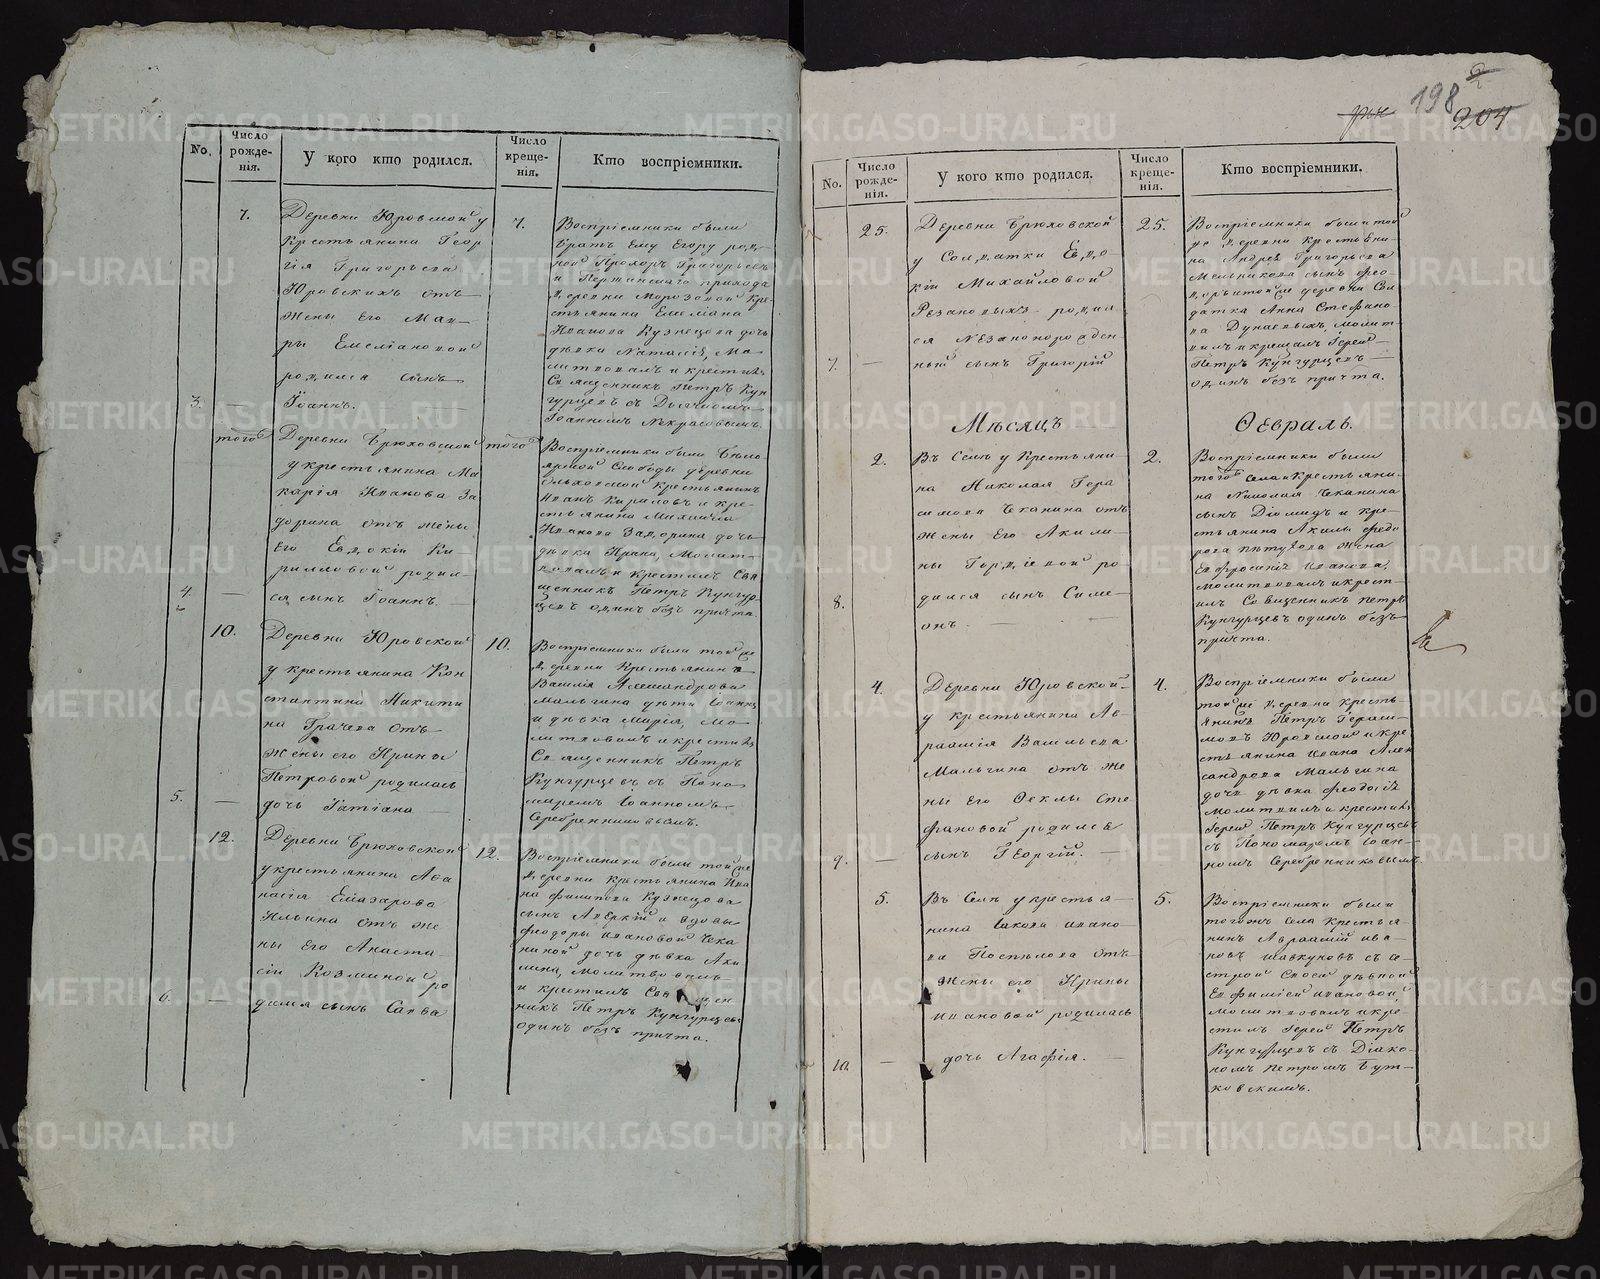 198
204
No.
Число рожде-нія.
У кого кто родился.
Число креще-нія.
Кто воспріемники.
7.
Деревни Юровской у
крестьянина Геор
гія Григорьева
Юровскихъ отъ
жены его Мав-
ры Емеліановой
родился сынъ
3. — Іоаннъ.
7.
Воспріемники были
братъ ему Егору род-
ной Прохоръ Григорьевъ
и прихода
деревни Морозовой кре-
стьянина Емельяна
Иванова Кузнецова дочь
дѣвка Наталія, Мо-
литвовалъ и крестилъ
Священникъ Петръ Кун
гурцевъ съ Дьячкомъ
Іоанномъ Некрасовымъ.
того
Деревни Брюховской
у крестьянина Ма
карія Иванова За
дорина отъ жены
его Евдокіи Ки
рилловой родил-
4. — ся сынъ Іоаннъ. —
того
Воспріемники были Бѣло-
ярской Слободы деревни
крестьянинъ
Иванъ Кириловъ и кре-
стьянина Михаила
Иванова Задорина дочь
дѣвка Ирина, Молит-
вовалъ и крестилъ Свя
щенникъ Петръ Кунгур
цевъ одинъ безъ причта
10.
Деревни Юровской
у крестьянина Кон
стантина Никити
на Грачева отъ
жены его Ирины
Петровой родилась
5. — дочь Татіана —
10.
Воспріемники были той же
деревни Крестьянина
Василія Александрова
Мальгина дѣти Іоаннъ
и дѣвка Марія, Мо-
литвовалъ и крестилъ
Священникъ Петръ
Кунгурцевъ съ Поно-
маремъ Іоанномъ
Серебренниковымъ.
12.
Деревни Брюховской
у крестьянина Аѳа
насія Елизарова
Ильина отъ же
ны его Анаста-
сіи Козминой ро
6. — дился сынъ Савва
12.
Воспріемники были той же
деревни крестьянина Ива
на Филипова Кузнецова
сынъ Аверкій и вдовы
Феодоры Ивановой Чека
ниной дочь дѣвка Аки
лина, Молитвовалъ
и крестилъ Священ
никъ Петръ Кунгурцевъ
одинъ безъ причта.
No.
Число рожде-нія.
У кого кто родился.
Число креще-нія.
Кто воспріемники.
25.
Деревни Брюховской
у Солдатки Евдо-
кіи Михайловой
Резановыхъ родил
ся Незаконорожден
7. — ный сынъ Григорій
25.
Воспріемники были той
же деревни крестьяни-
на Андрея Григорьева
Мельникова сынъ Фео-
доръ и той же деревни Сол
датка Анна Стефано-
ва Дунаевыхъ, молит-
вилъ и крещалъ Іерей
Петръ Кунгурцевъ
одинъ безъ причта.
Мѣсяцъ
Февраль.
2.
Въ Селѣ у Крестьяни-
на Николая Гера
симова Чеканина отъ
жены его Акили-
ны Гордіевой ро-
дился сынъ Симе-
8. онъ. —
2.
Воспріемники были
того Села Крестьяни-
на Николая Чеканина
сынъ Діомидъ и кре-
стьянина Акилы Федо
рова Пѣтухова жена
Евфросинія Иванова,
молитвовалъ и крест-
илъ Священникъ Петръ
Кунгурцевъ одинъ безъ
причта.
4.
Деревни Юровской
у крестьянина Ав-
раамія Васильева
Мальгина отъ же
ны его Ѳеклы Сте
фановой родился
9. — сынъ Георгій. —
4.
Воспріемники были
той же деревни кресть-
янинъ Петръ Гераси-
мовъ Юровской и кре
стьянина Ивана Алек
сандрова Мальгина
дочь дѣвка Феодосія
молитвилъ и крестилъ
Іерей Петръ Кунгурцевъ
съ Пономаремъ Іоан-
номъ Серебренниковымъ
5.
Въ Селѣ у крестья-
нина Іакова Ивано-
ва Поспѣлова отъ
жены его Ирины
Ивановой родилась
10. — дочь Агафія. —
5.
Воспріемники были
того жъ Села Крестья-
нинъ Авраамій Ива-
новъ Шавкуновъ съ се-
строй Своей дѣвкой
Евфимией Ивановой,
молитвовалъ и кре-
стилъ Іерей Петръ
Кунгурцевъ съ Діако-
номъ Петромъ Бут-
ковскимъ.
METRIKI.GASO-URAL.RU